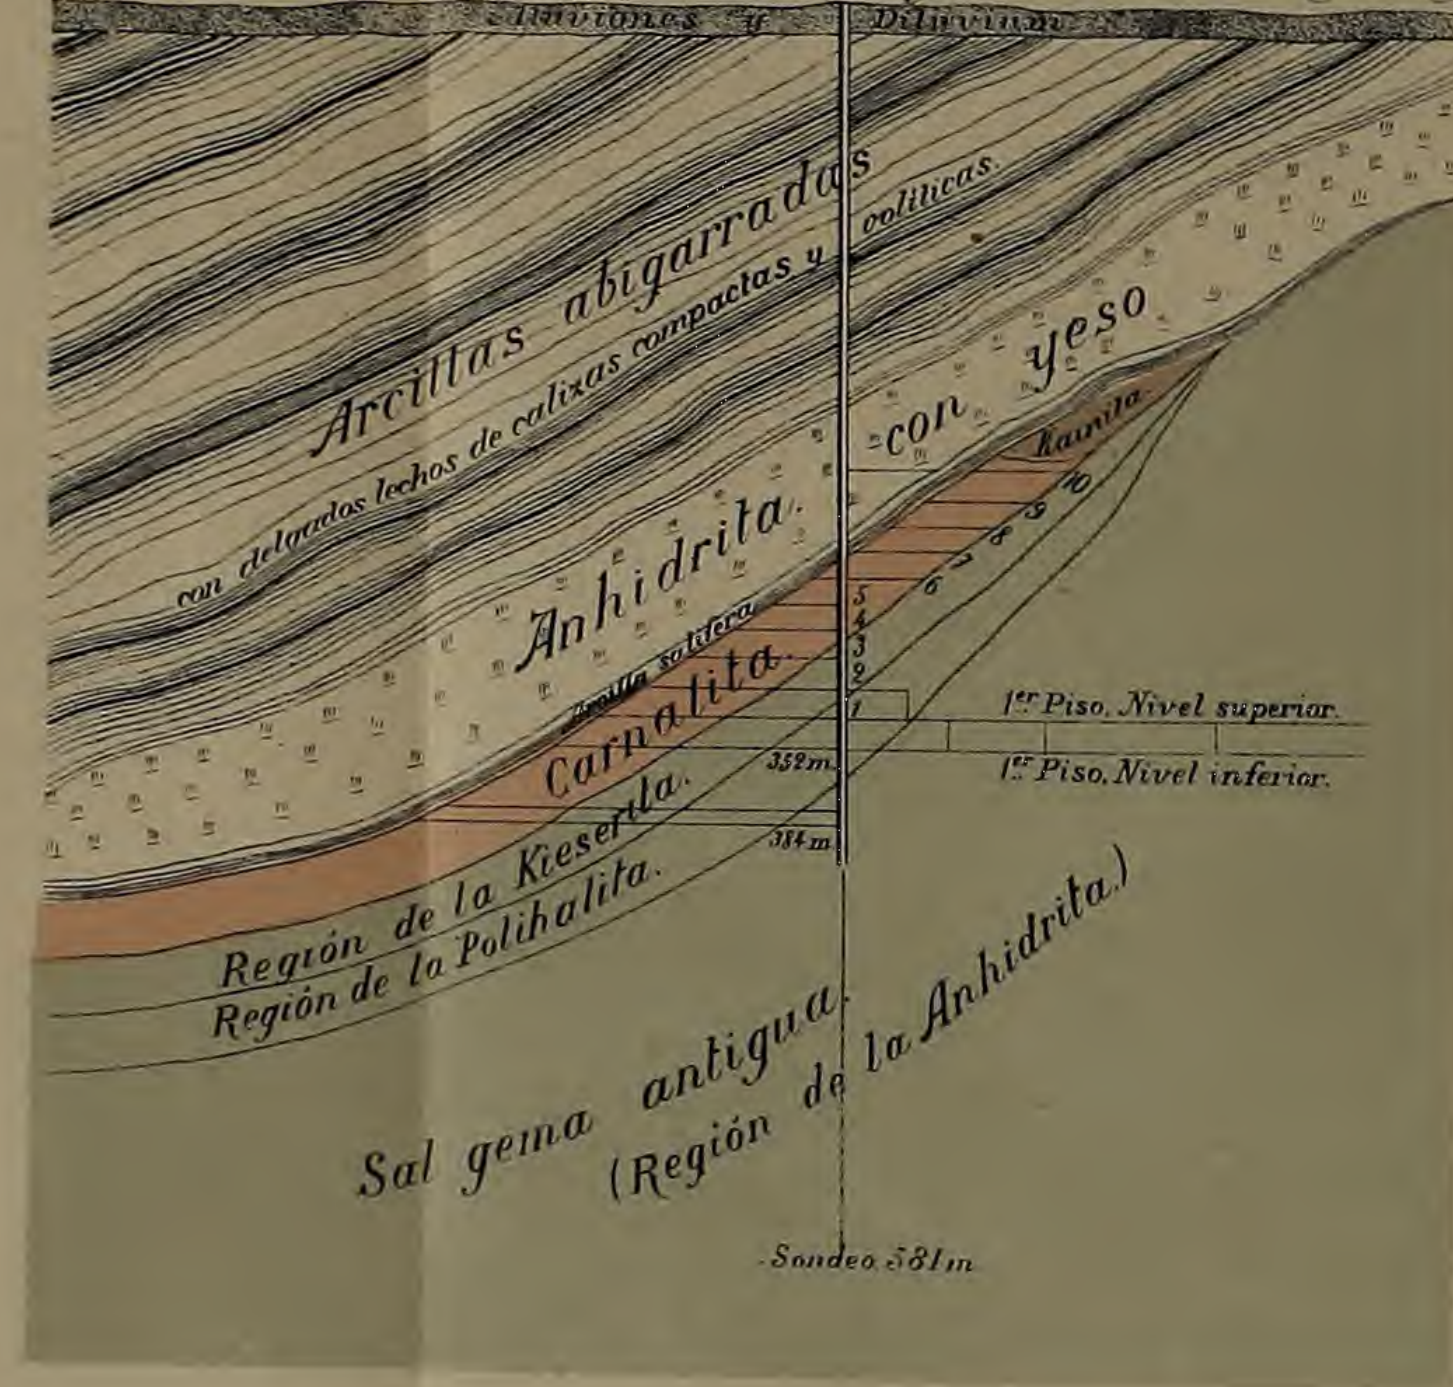 Aluviones y Diluvium
Arcillas abigarradas
con delgados lechos de calizas compactas y oolilicas.
Anhidrita. con yeso
Arcilla salifera
Kainita.
Carnalita.
10
9
8
7
6
5
4
3
2
1
1er Piso. Nivel superior.
352 m.
1er Piso. Nivel inferior.
384 m
Región de la Kieserita.
Región de la Polihalita.
Sal gema antigua.
(Región de la Anhidrita.)
Sondeo. 581 m